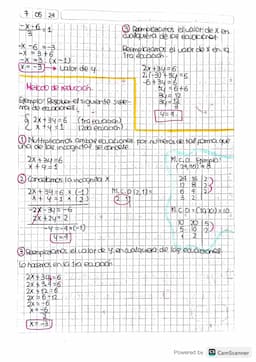 7 05 24
-x-6 = 1
3
-x-6 = 3
-x = 3+6
-x = 9 (x-1)
x = -9 → valor de y.
③ Reemplazamos el valor de x en
cualquiera de las ecuaciones
Reemplazamos el valor de x en la
1ra ecuación
2x+3y=6
-6+3y=6
3y = 6+6
3y = 12
y=4
Método de reducción.
Ejemplo: Resolver el siguiente siste-
ma de ecuaciones.
2x+3y=6 (1ra ecuación)
x+y=1 (2da ecuación)
① Multiplicamos ambas ecuaciones por números de tal forma que
una de las incógnitas se cancele
2x+3y=6
x+y=1
M.C.D Ejemplo:
② Cancelamos la incógnita x
2x+3y=6 × (-1)
x+y=1 × (2)
M.C.D (2,1)=
-2x-3y=-6
2x+2y=2
-y=-4 ×(-1)
y=4
24 16 2
12 8 2
6 4 2
3 2
10 20 2
5 10
1 2
③ Reemplazamos el valor de y en cualquiera de las ecuaciones
Lo hacemos en la 1ra ecuación
2x+3y=6
2x+12=6
2x=6-12
2x=-6
x=-6
2
x=-3
Powered by CS CamScanner